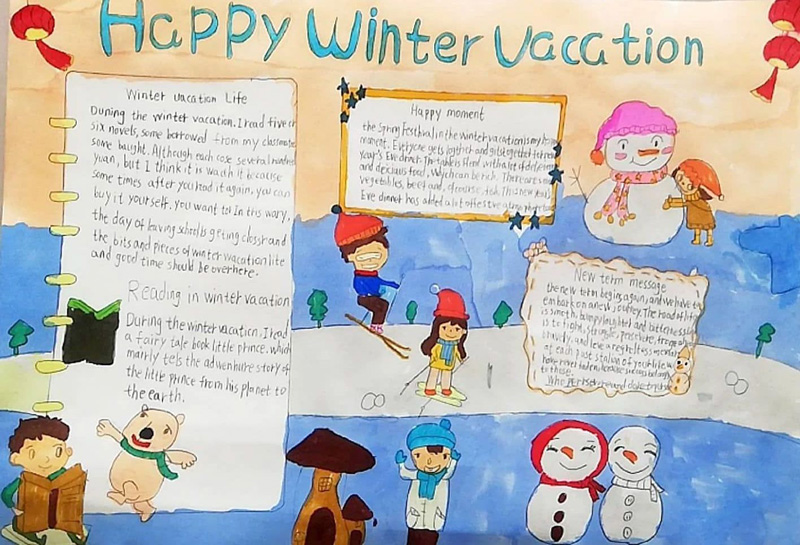 Happy Winter Vacation
Winter vacation Life
During the winter vacation, I read five or
six novels, some borrowed from my classmates
some baught. Although each cose several hundred
yuan, but I think it is wadh it because
some times after you read it again, you can
buy it yourself. you want to! In this wary,
the day of leaving school is geting closer and
the bits and pieces of winter vacation lite
and good time should be over here.
Reading in winter vacation
During the winter vacation, I read
a fairy tale book little prince. which
marly tels the adventure story of
the little prince from his planet to
the earth.
Happy moment
the Spring Festival in the winter vacation is my happy
moment. Everyone gets togther and gits together to
year's Eve dinner. The table is filled with a lot of
and delicious food, vegetables,
vegetables, beef and, of course, fish. This new year's
Eve dinner has added a lot of festive
New term message
the new term begins again, and we have to
embark on a new journey. The road of life
is smooth, bumpy, laughter and bitterness
is to fight, struggle, persevere,
bravily, and leave a regretless
of each past station of your life.
have never
to those
who persevere and